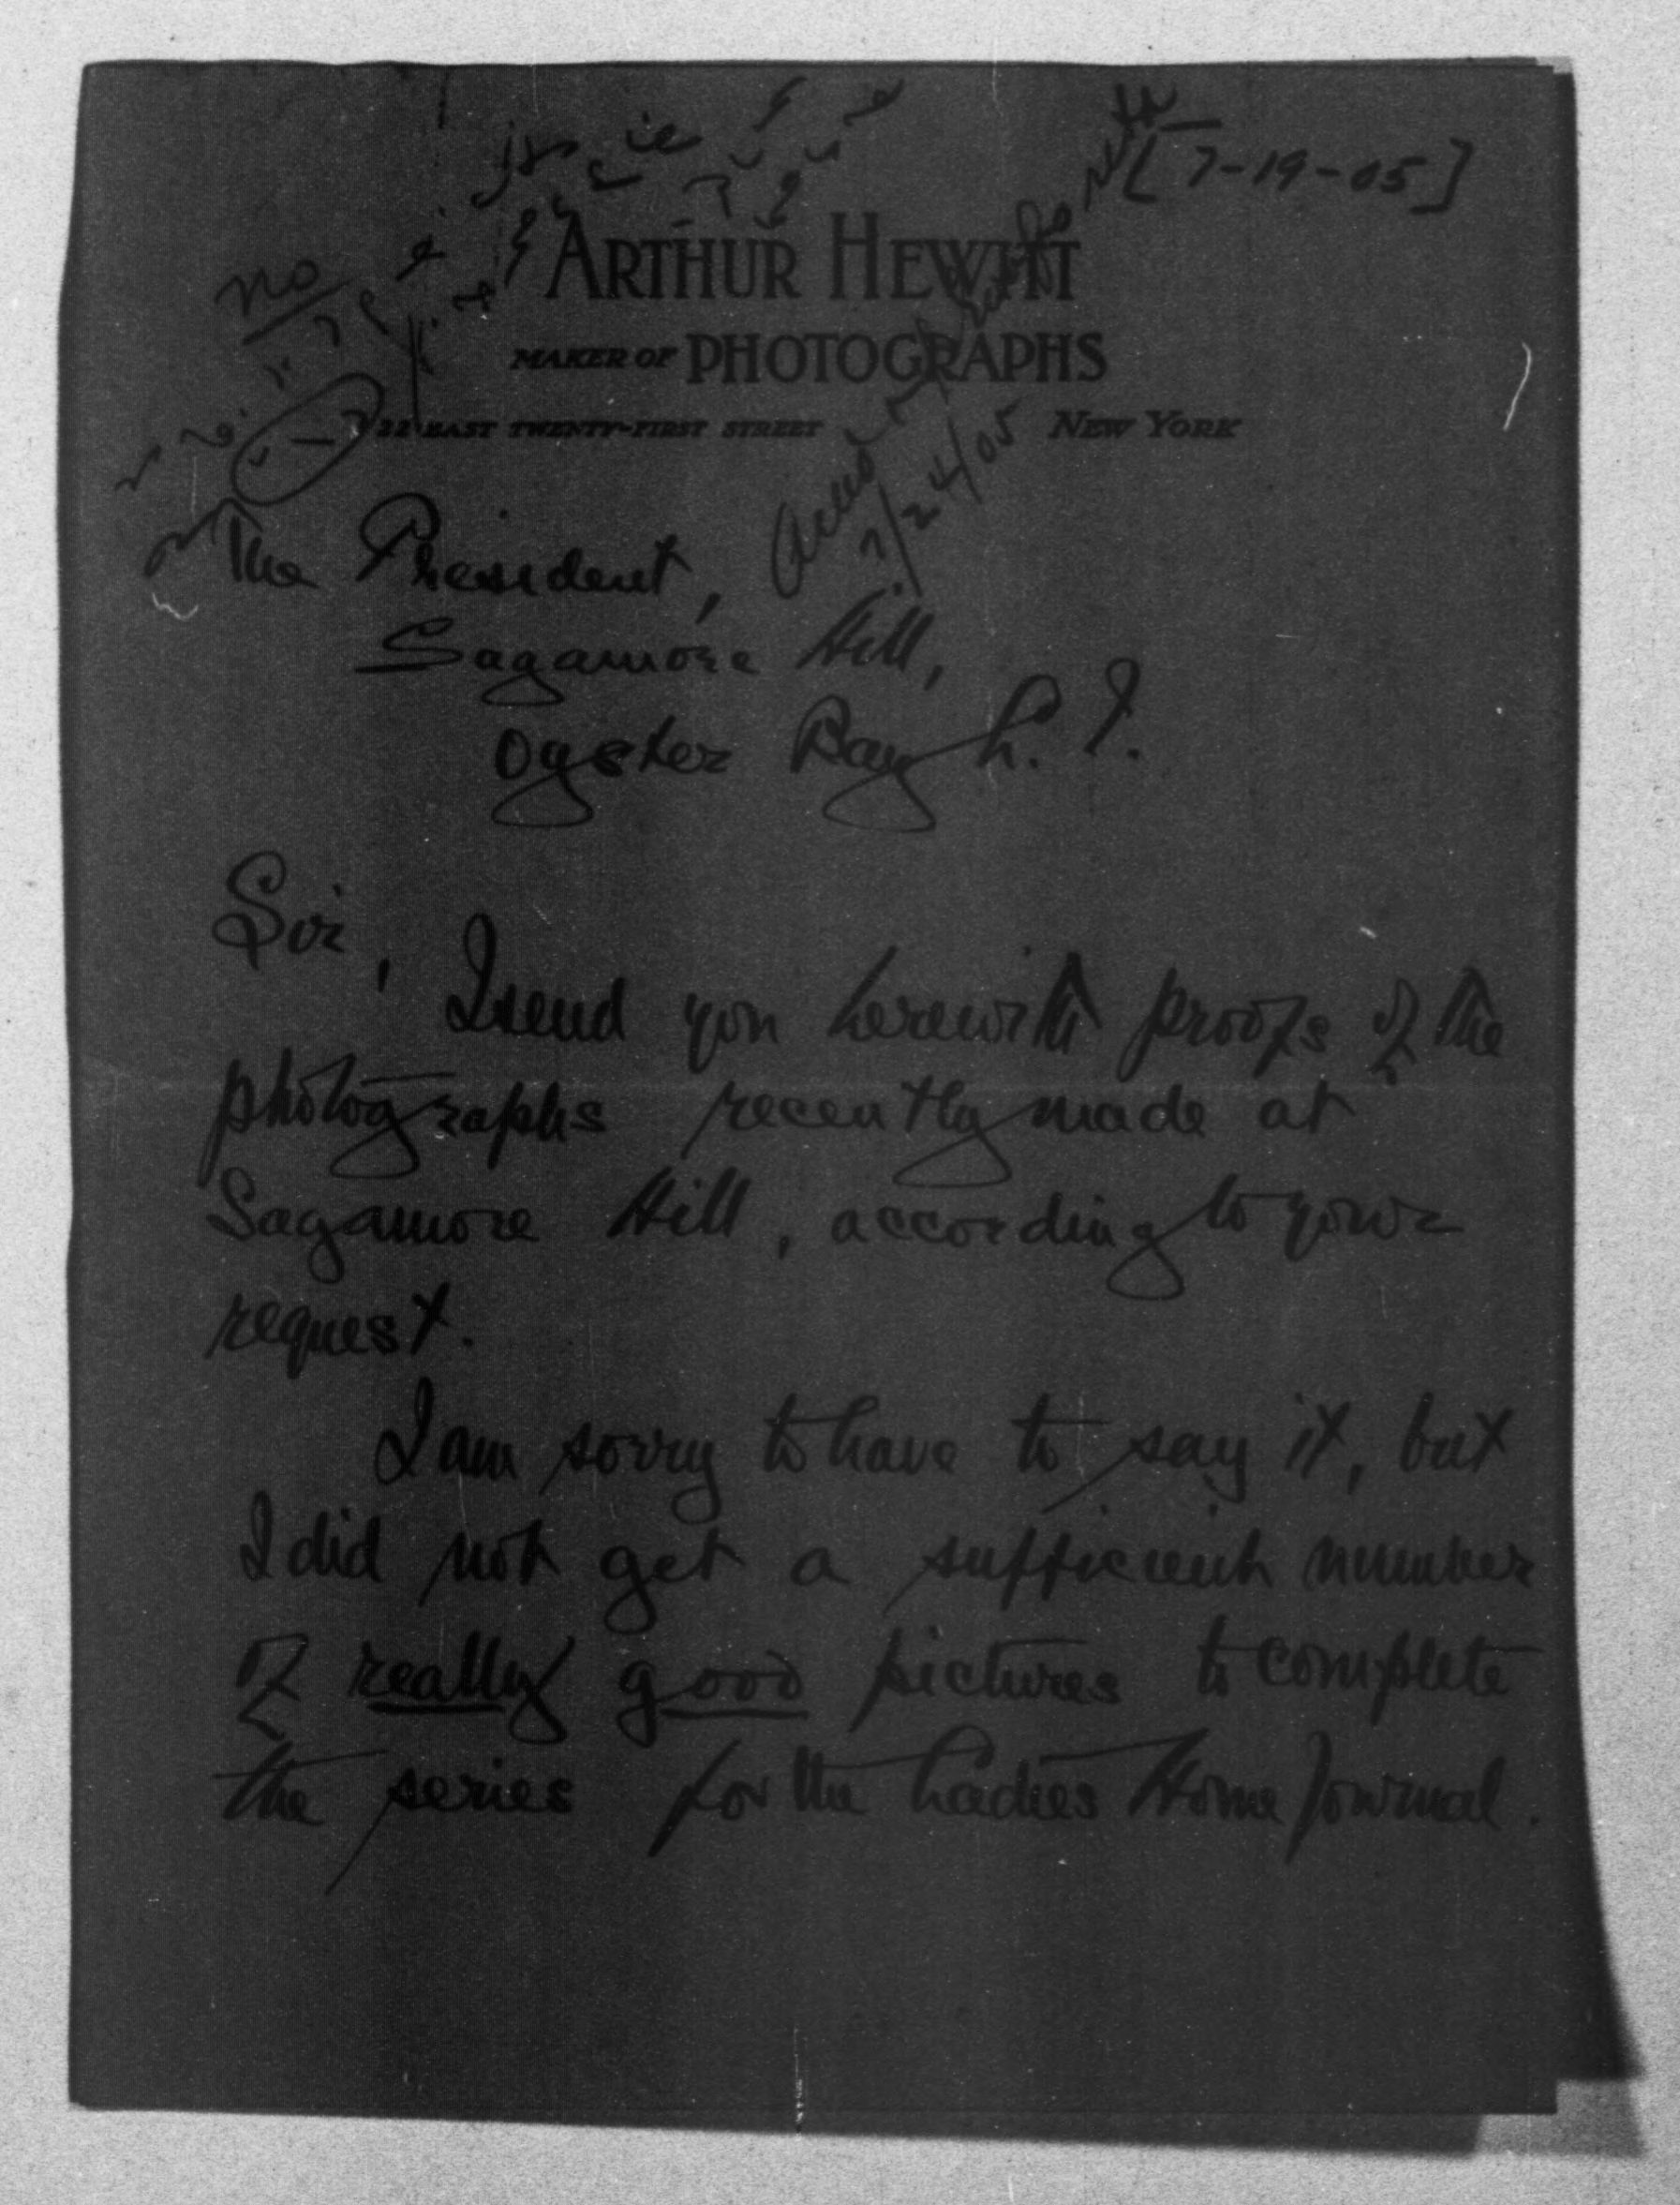 [7-19-05]
no
ARTHUR HEWITT
MAKER OF PHOTOGRAPHS
22 EAST TWENTY-FIRST STREET NEW YORK
7/24/05
The President,
Sagamore Hill,
Oyster Bay L. I.
Sir,
I send you herewith proofs of the
photographs recently made at
Sagamore Hill, according to your
request.
I am sorry to have to say it, but
I did not get a sufficient number
of really good pictures to complete
the series for the Ladies Home Journal.